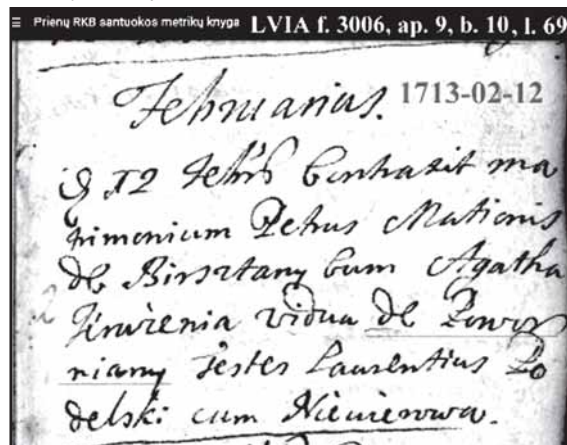 ≡ Prienų RKB santuokos metrikų knyga LVIA f. 3006, ap. 9, b. 10, l. 69
Februarius. 1713-02-12
12 Febris Contraxit ma
trimonium Petrus
de Birsztany Cum Agatha
vidua de
niany Testes Laurentius Po
delski cum